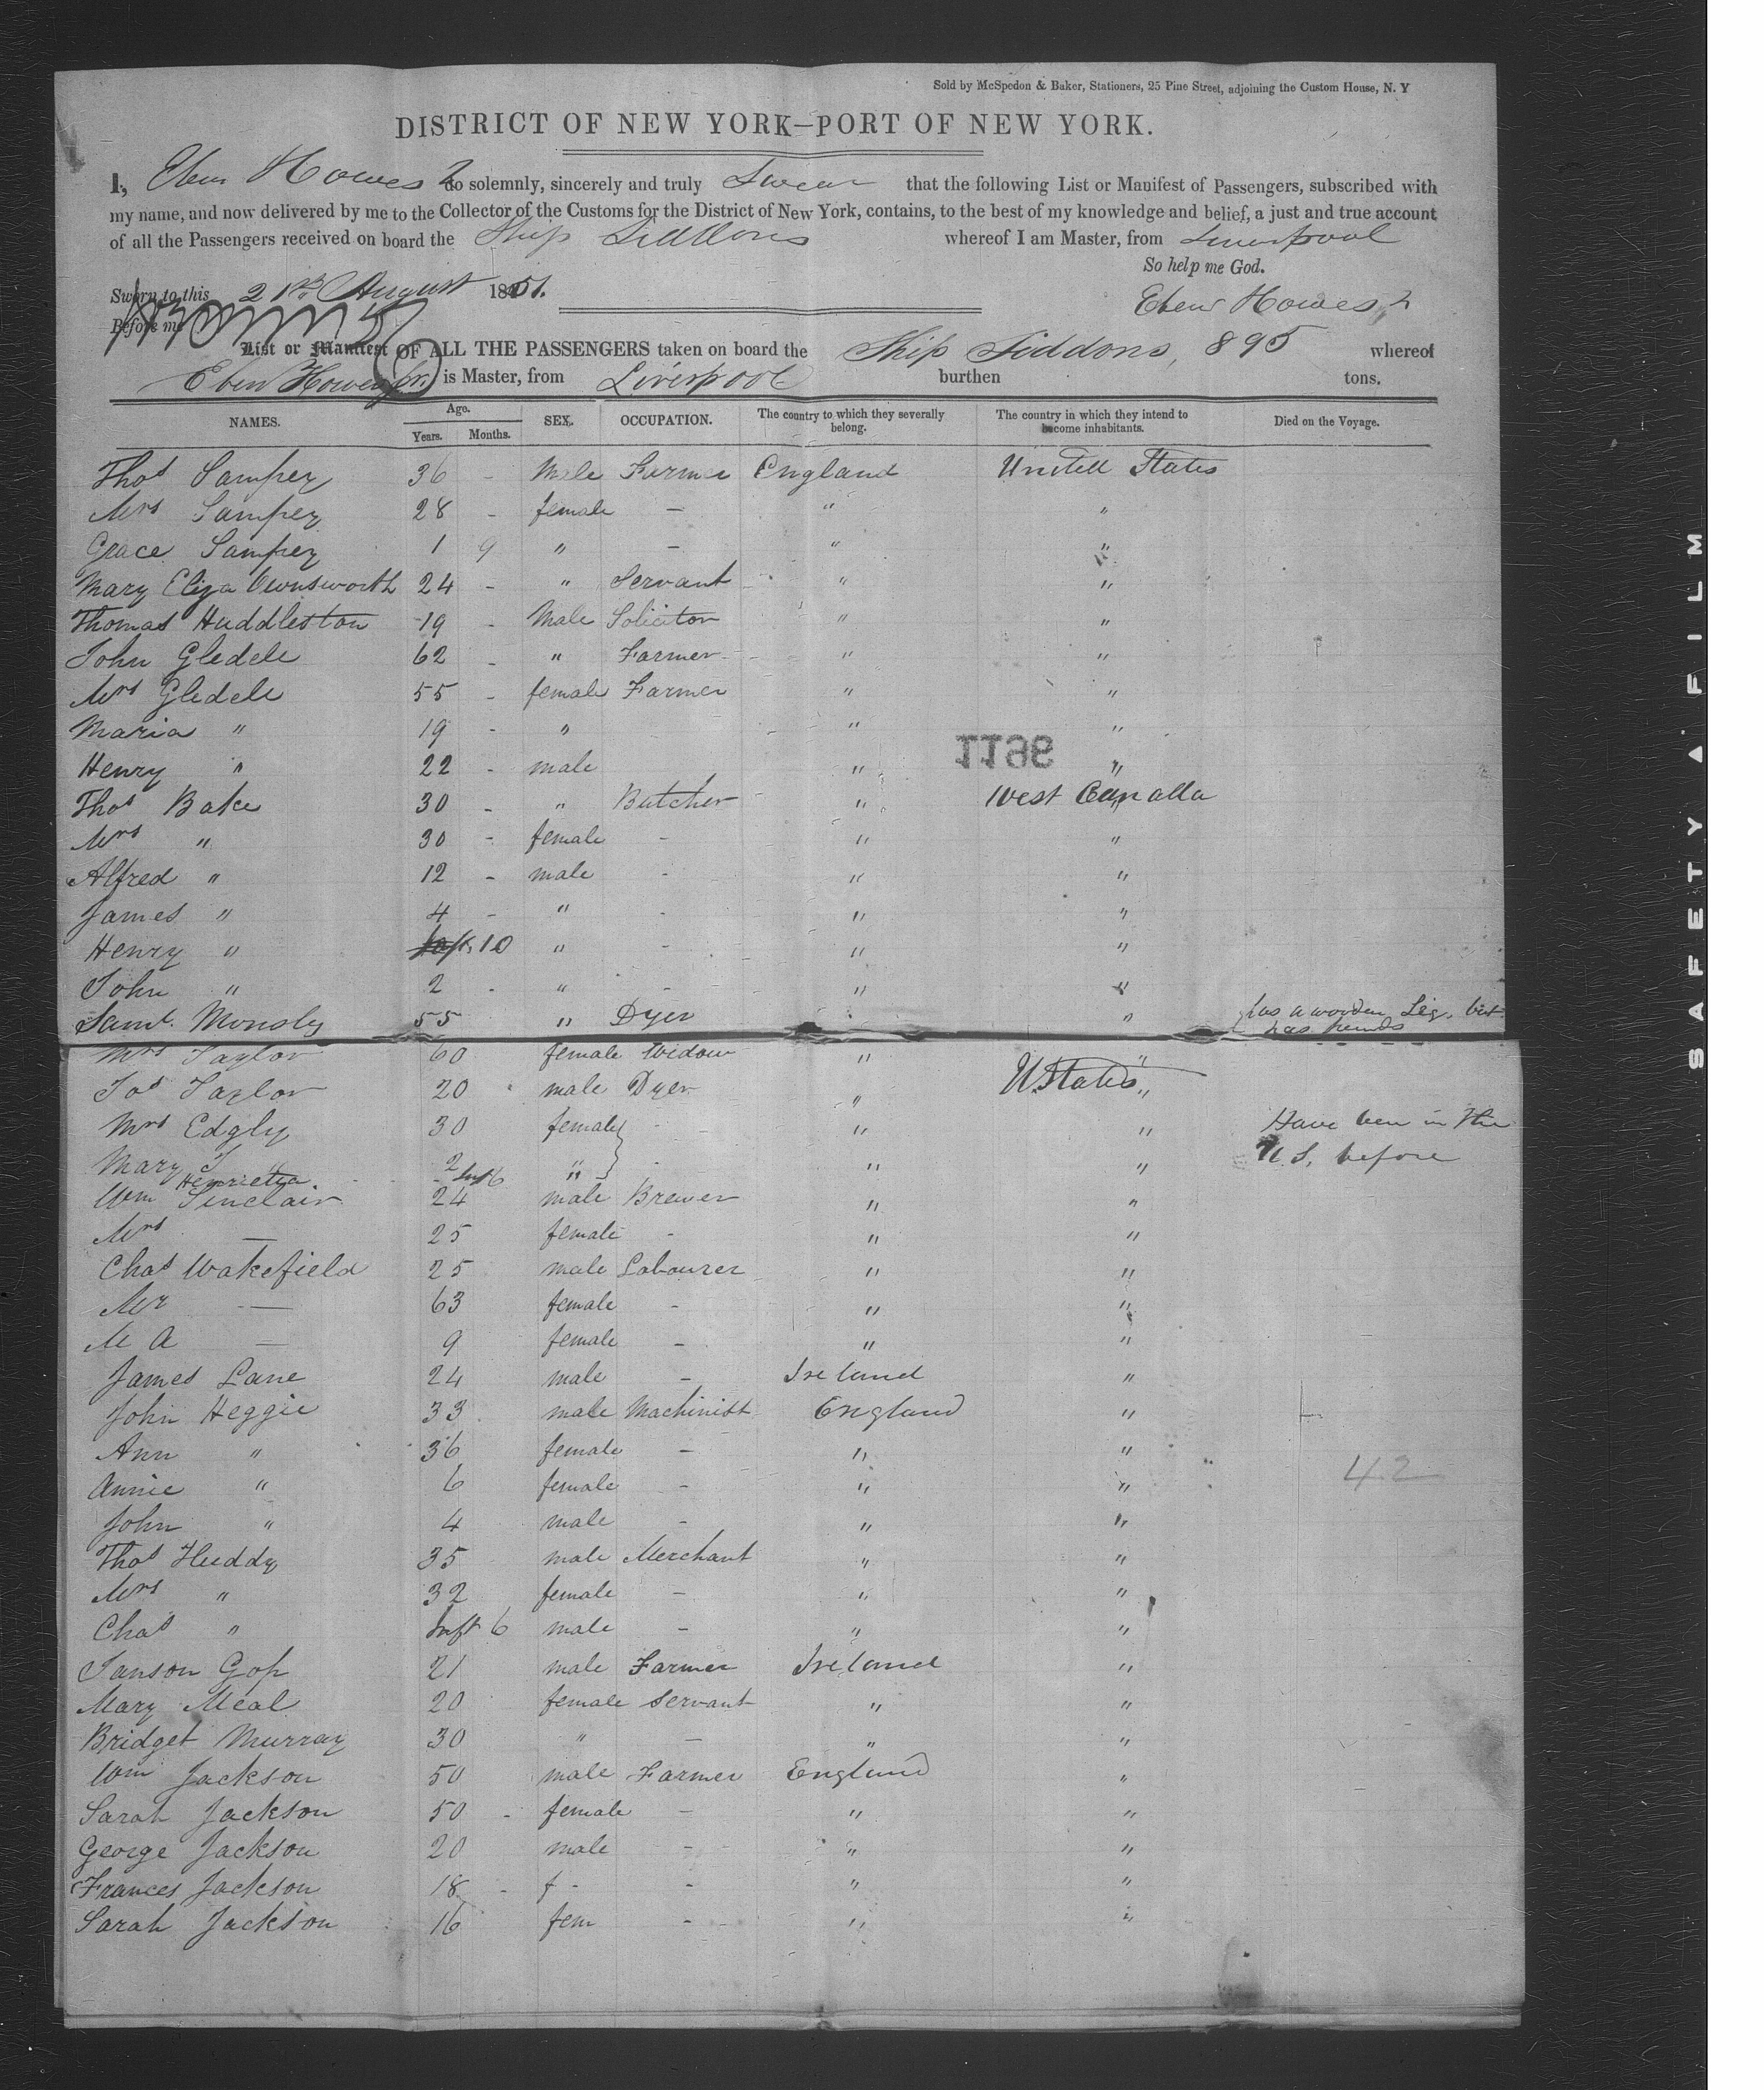 Sold by McSpedon & Baker, Stationers, 25 Pine Street, adjoining the Custom House, N. Y
DISTRICT OF NEW YORK—PORT OF NEW YORK.
I, Eben Howes 2 do solemnly, sincerely and truly Swear that the following List or Manifest of Passengers, subscribed with
my name, and now delivered by me to the Collector of the Customs for the District of New York, contains, to the best of my knowledge and belief, a just and true account
of all the Passengers received on board the Ship Siddons whereof I am Master, from Liverpool
So help me God.
Sworn to this 21st August 1851.
Eben Howes 2
Before me
List or Manifest OF ALL THE PASSENGERS taken on board the Ship Siddons, 895 whereof
Eben Howes jr. is Master, from Liverpool burthen tons.
NAMES. Age. Years. Months. SEX. OCCUPATION. The country to which they severally belong. The country in which they intend to become inhabitants. Died on the Voyage.
Thos Sampey 36 - Male Farmer England United States
Mrs Sampey 28 - female - " "
Grace Sampey 1 9 " - " "
Mary Eliza 24 - " Servant " "
Thomas Huddleston 19 - Male Solicitor " "
John Gledele 62 - " Farmer " "
Mrs Gledele 55 - female Farmer " "
Maria " 19 - " " "
1196
Henry " 22 - male " "
Thos Bake 30 - " Butcher " West Canada
Mrs " 30 - female - " "
Alfred " 12 - male - " "
James " 4 - " - " "
Henry " Inft. 10 " - " "
John " 2 - " - " "
Saml. Monsly 55 " Dyer " has a wooden Leg, but
has friends
Mrs Taylor 60 female Widow " "
Jos Taylor 20 male Dyer " U States "
Mrs Edgly 30 female - " " Have been in the
Mary J 2 " - " " U.S. before
Henrietta Inft 6 "
Wm Sinclair 24 male Brewer " "
Mrs — 25 female - " "
Chas Wakefield 25 male Labourer " "
Mr — 63 female - " "
M A — 9 female - " "
James Lane 24 male - Ireland "
John Heggie 33 male Machinist England "
Ann " 36 female - " "
42
Annie " 6 female - " "
John " 4 male - " "
Thos Huddy 35 male Merchant " "
Mrs " 32 female - " "
Chas " Inft 6 male - " "
Janson 21 male Farmer Ireland "
Mary Meal 20 female Servant " "
Bridget Murray 30 " - " "
Wm Jackson 50 male Farmer England "
Sarah Jackson 50 - female - " "
George Jackson 20 male - " "
Frances Jackson 18 - f - - " "
Sarah Jackson 16 fem - " "
SAFETY FILM